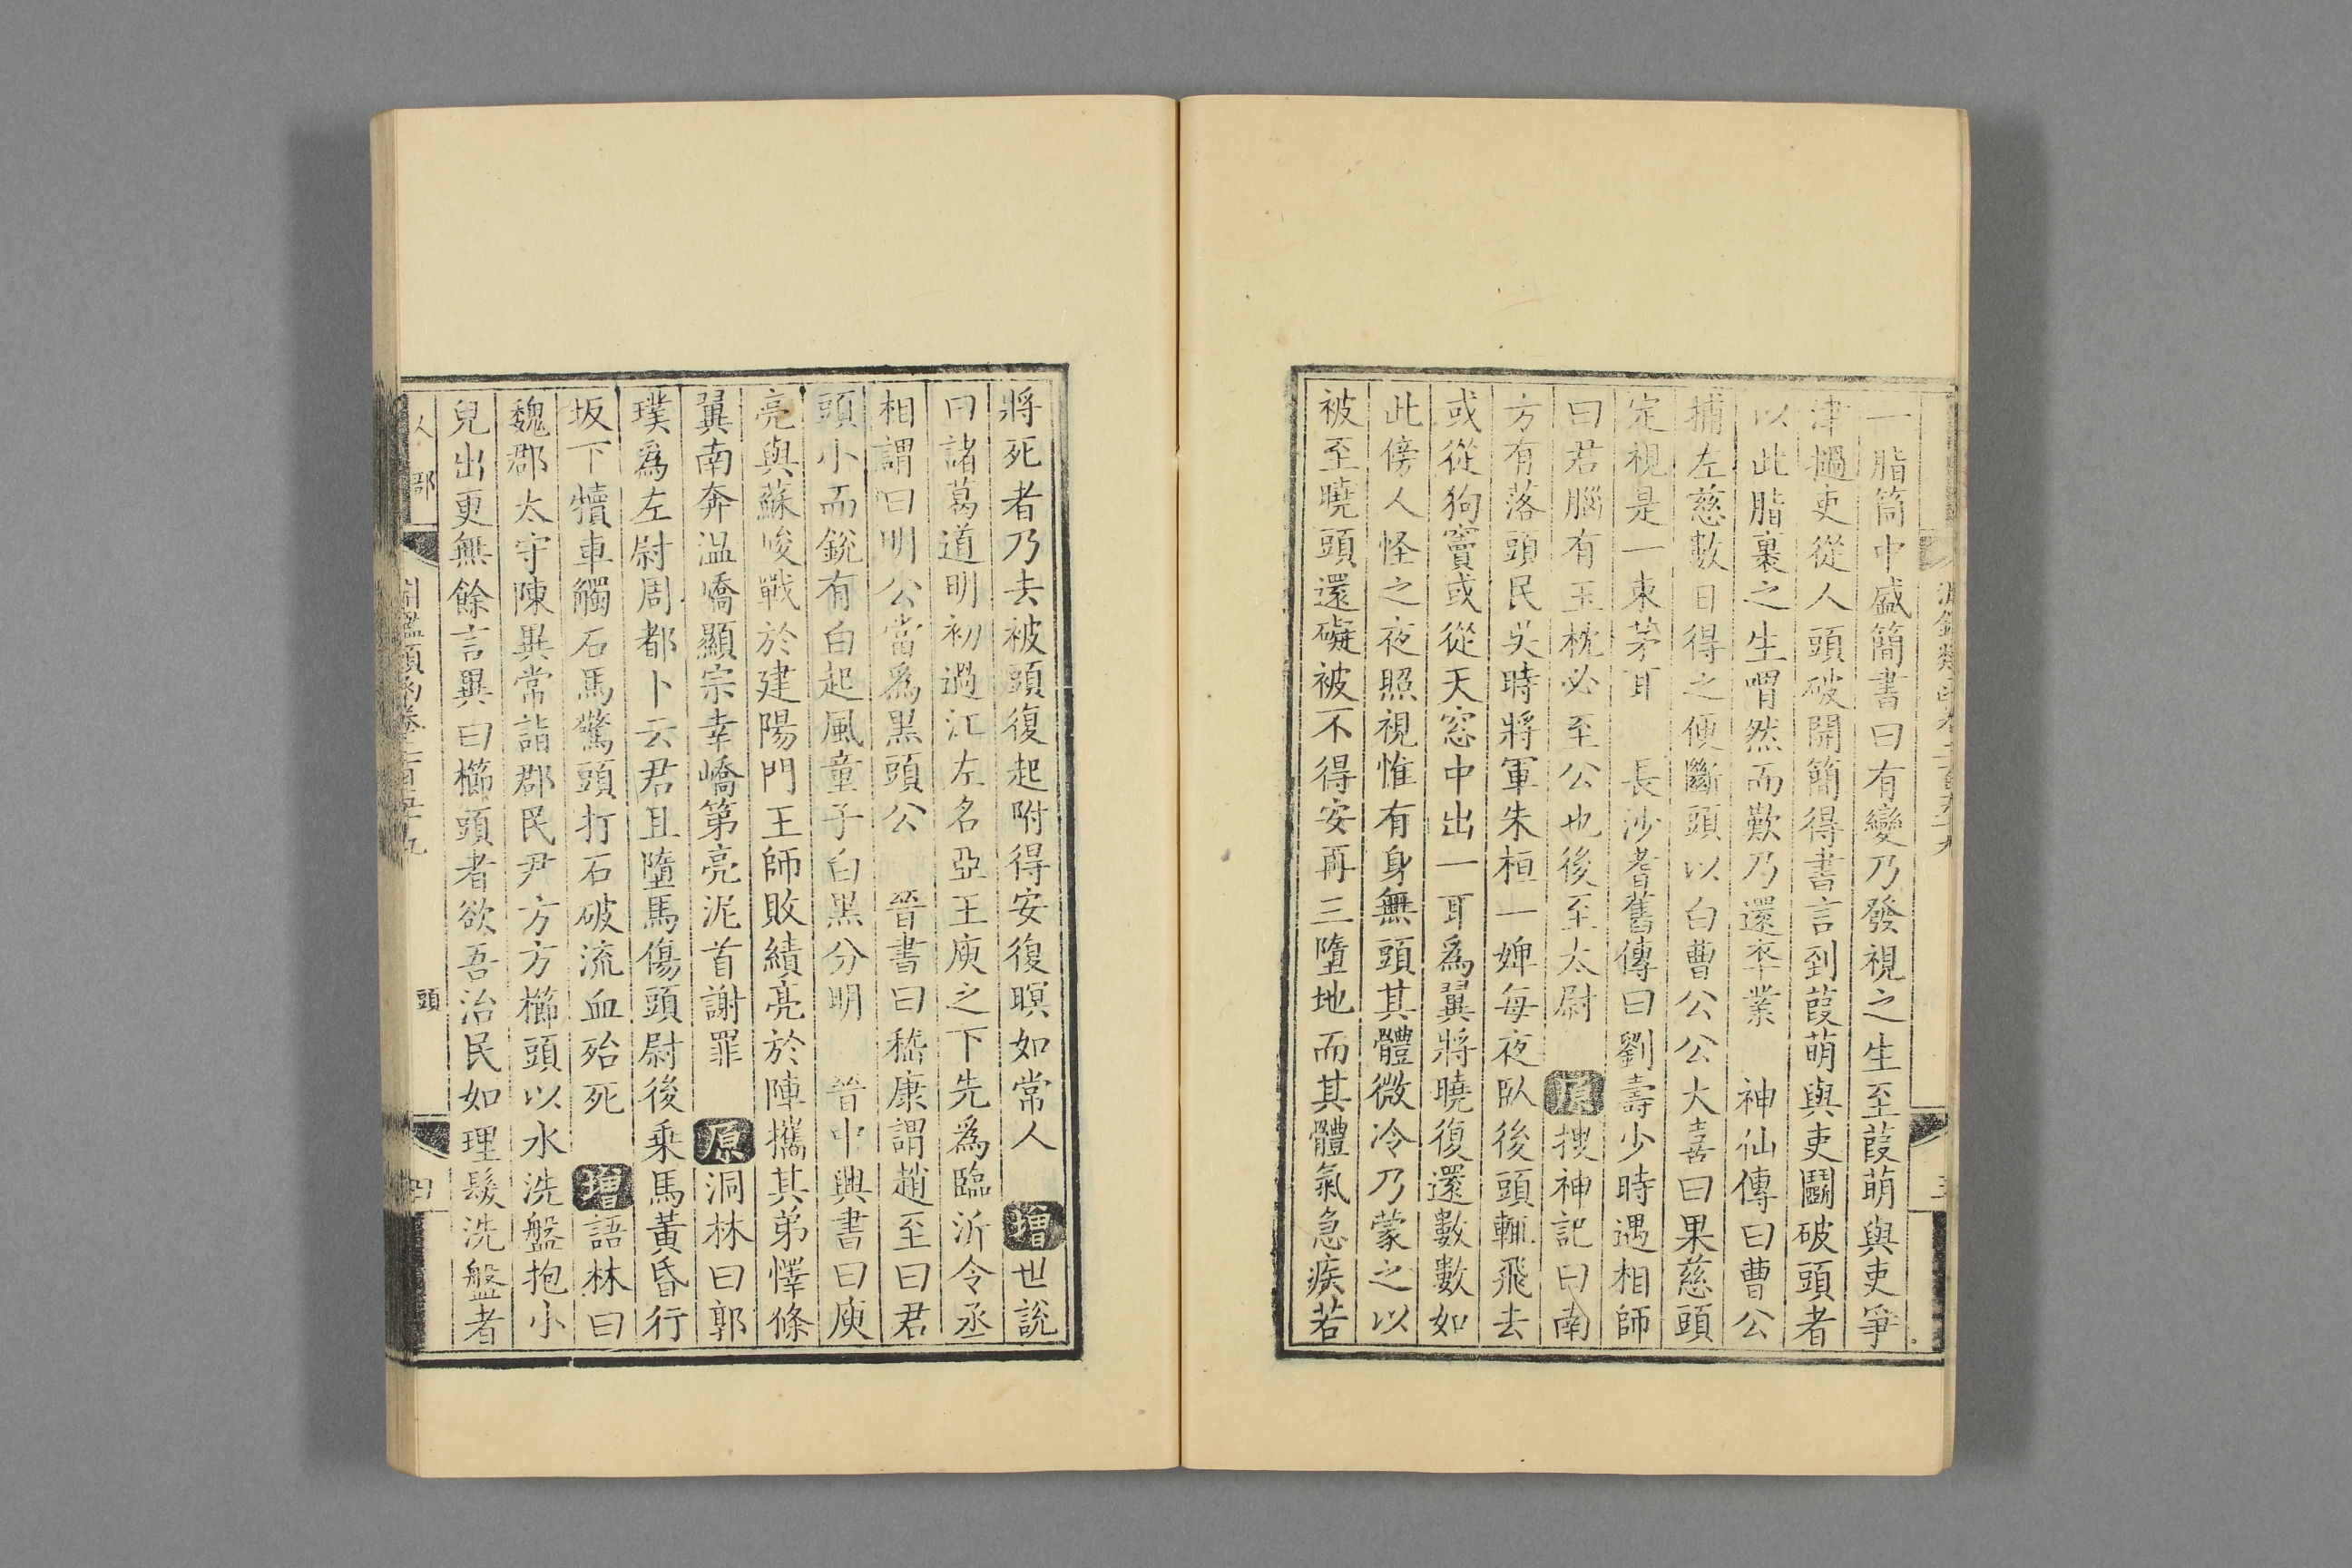 一脂筒中盛簡書曰有變乃發視之生至葭萌與吏爭
津撾吏從人頭破開簡得書言到葭萌與吏鬭破頭者
以此脂裹之生喟然而歎乃還卒業　神仙傳曰曹公
捕左慈數日得之便斷頭以白曹公公大喜曰果慈頭
定視是一束茅耳　長沙耆舊傳曰劉壽少時遇相師
曰君腦有玉枕必至公也後至太尉　原搜神記曰南
方有落頭民吳時將軍朱桓一婢每夜臥後頭輒飛去
或從狗竇或從天窓中出一耳爲翼將曉復還數數如
此傍人怪之夜照視惟有身無頭其體微冷乃蒙之以
被至曉頭還礙被不得安再三墮地而其體氣急疾若
將死者乃去被頭復起附得安復瞑如常人　增世說
曰諸葛道明初過江左名亞王庾之下先爲臨沂令丞
相謂曰明公當爲黑頭公　晉書曰嵇康謂趙至曰君
頭小而銳有白起風童子白黑分明　晉中興書曰庾
亮與蘇峻戰於建陽門王師敗績亮於陣攜其弟懌條
翼南奔温嶠顯宗幸嶠第亮泥首謝罪　原洞林曰郭
璞爲左尉周都卜云君且墮馬傷頭尉後乘馬黃昏行
坂下犢車觸石馬驚頭打石破流血殆死　增語林曰
魏郡太守陳異常詣郡民尹方方櫛頭以水洗盤抱小
兒出更無餘言異曰櫛頭者欲吾治民如理髮洗盤者
人部
頭